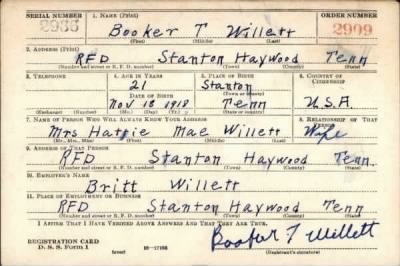 SERIAL NUMBER 1. NAME (Print) ORDER NUMBER
Booker T Willett 2909
(First) (Middle) (Last)
2. ADDRESS (Print)
RFD Stanton Haywood Tenn
(Number and street or R. F. D. number) (Town) (County) (State)
3. TELEPHONE 4. AGE IN YEARS 5. PLACE OF BIRTH 6. COUNTRY OF CITIZENSHIP
21 Stanton
DATE OF BIRTH (Town or county)
Nov 18 1918 Tenn U.S.A.
(Exchange) (Number) (Mo.) (Day) (Yr.) (State or country)
7. NAME OF PERSON WHO WILL ALWAYS KNOW YOUR ADDRESS 8. RELATIONSHIP OF THAT PERSON
Mrs Hattie Mae Willett Wife
(Mr., Mrs., Miss) (First) (Middle) (Last)
9. ADDRESS OF THAT PERSON
RFD Stanton Haywood Tenn.
(Number and street or R. F. D. number) (Town) (County) (State)
10. EMPLOYER'S NAME
Britt Willett
11. PLACE OF EMPLOYMENT OR BUSINESS
RFD Stanton Haywood Tenn
(Number and street or R. F. D. number) (Town) (County) (State)
I AFFIRM THAT I HAVE VERIFIED ABOVE ANSWERS AND THAT THEY ARE TRUE.
REGISTRATION CARD
D. S. S. Form 1 (over) 16-17105 Booker T Willett
(Registrant's signature)